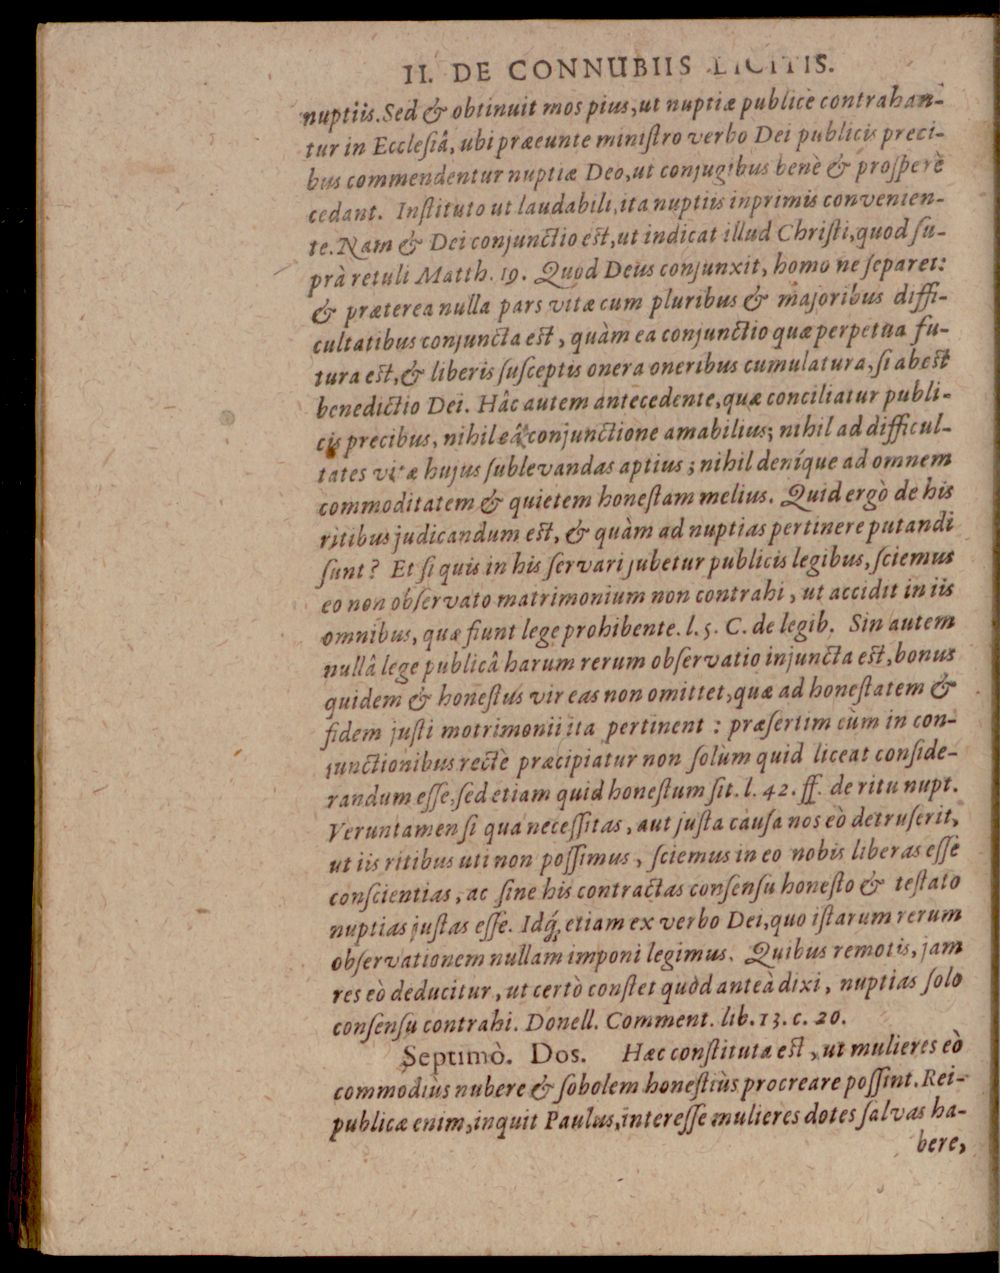 II. DE CONNUBIIS LICITIS.
nuptiis. Sed & obtinuit mos pius, ut nuptiæ publicè contrahan-
tur in Ecclesiâ, ubi præeunte ministro verbo Dei publicis preci-
bus commendentur nuptiæ Deo, ut conjugibus benè & prosperè
cedant. Instituto ut laudabili, ita nuptiis inprimis convenien-
te. Nam & Dei conjunctio est, ut indicat illud Christi, quod su-
prà retuli Matth. 19. Quod Deus conjunxit, homo ne separet:
& præterea nulla pars vitæ cum pluribus & majoribus diffi-
cultatibus conjuncta est, quàm ea conjunctio quæ perpetua fu-
tura est, & liberis susceptis onera oneribus cumulatura, si abest
benedictio Dei. Hâc autem antecedente, quæ conciliatur publi-
cis precibus, nihil eâ conjunctione amabilius; nihil ad difficul-
tates vitæ hujus sublevandas aptius; nihil deníque ad omnem
commoditatem & quietem honestam melius. Quid ergò de his
ritibus judicandum est, & quàm ad nuptias pertinere putandi
sunt? Et si quis in his servari jubetur publicis legibus, sciemus
eo non observato matrimonium non contrahi, ut accidit in iis
omnibus, quæ fiunt lege prohibente. l. 5. C. de legib. Sin autem
nullâ lege publicâ harum rerum observatio injuncta est, bonus
quidem & honestus vir eas non omittet, quæ ad honestatem &
fidem justi motrimonii ita pertinent: præsertim cùm in con-
junctionibus rectè præcipiatur non solùm quid liceat conside-
randum esse, sed etiam quid honestum sit. l. 42. ff. de ritu nupt.
Veruntamen si qua necessitas, aut justa causa nos eò detruserit,
ut iis ritibus uti non possimus, sciemus in eo nobis liberas esse
conscientias, ac sine his contractas consensu honesto & testato
nuptias justas esse. Idq́; etiam ex verbo Dei, quo istarum rerum
observationem nullam imponi legimus. Quibus remotis, jam
res eò deducitur, ut certò constet quòd anteà dixi, nuptias solo
consensu contrahi. Donell. Comment. lib. 13. c. 20.
Septimò. Dos. Hæc constituta est, ut mulieres eò
commodiùs nubere & sobolem honestiùs procreare possint. Rei-
publicæ enim, inquit Paulus, interesse mulieres dotes salvas ha-
bere,